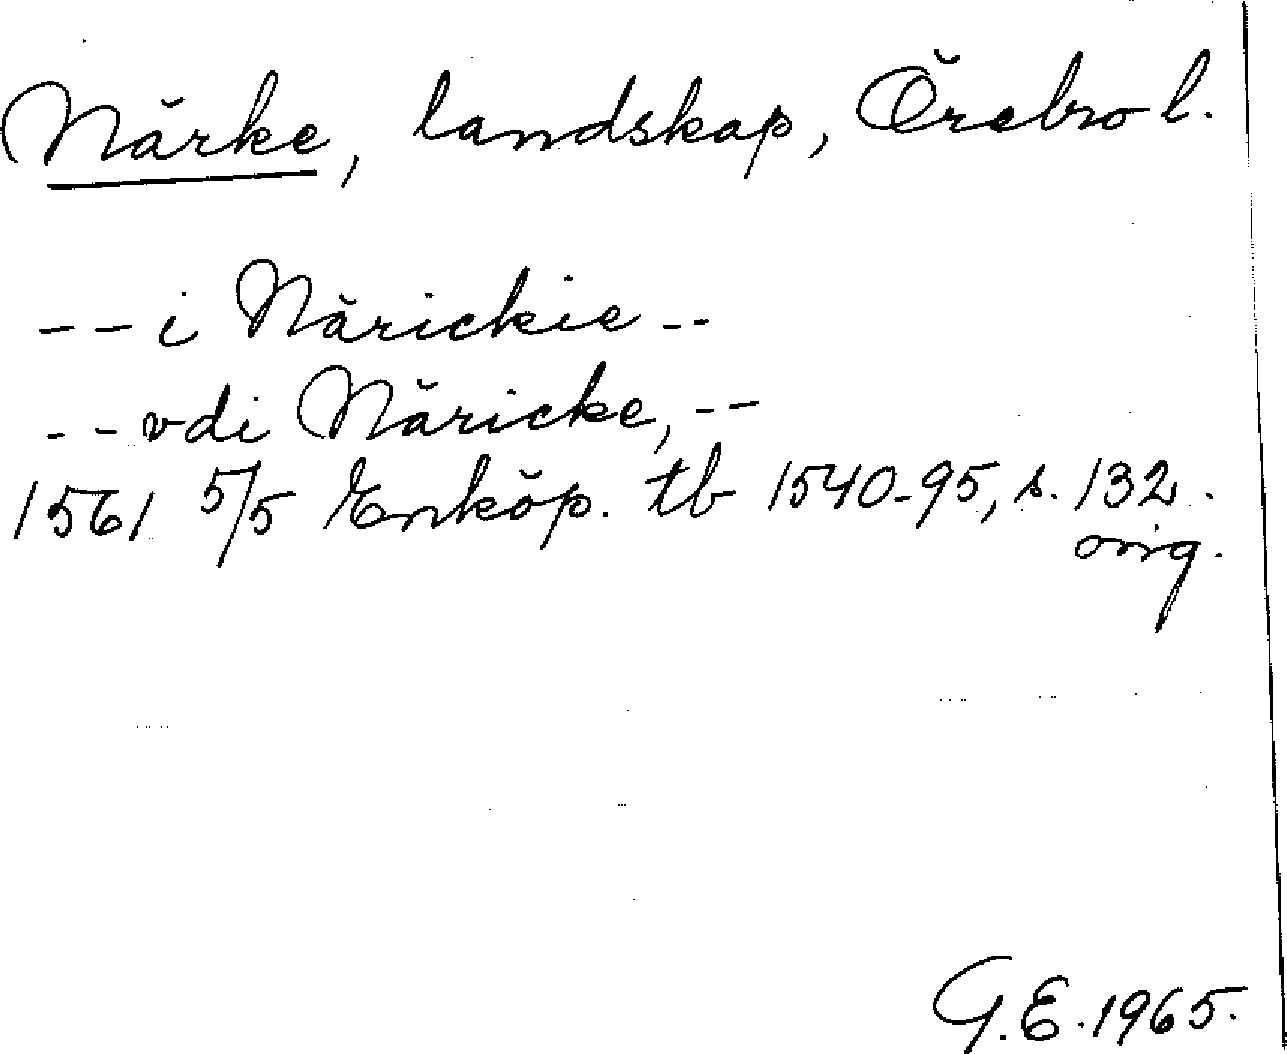 Närke, landskap, Örebro l.
-- i Närickie --
-- vdi Näricke, --
1561 5/5 Enköp. tb 1540-95, s. 132.
orig.
G.E. 1965.